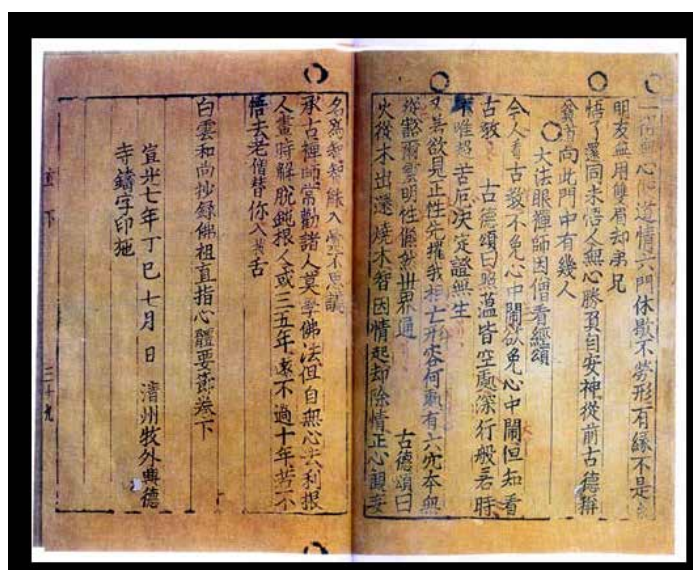 一得無心便道情六門休歇不勞形有緣不是
朋友無用雙眉却弟兄
悟了還同未悟人無心勝負自安神從前古德稱
貧道向此門中有幾人
大法眼禪師因僧看經頌
今人看古教不免心中鬧欲免心中鬧但知看
古教 古德頌曰照蘊皆空處深行般若時
不唯超苦厄決定證無生
又若欲見正性先摧我相亡形容何處有六本無
蹤豁爾雲明性翛然世界通 古德頌曰
火從木出還燒木智因情起却除情正心觀妄
名爲智入不思議
承古禪師常勸諸人莫學佛法但自無心去利根
人晝時解脫鈍根人或三五年遠不過十年若不
悟去老僧替你入拔舌
白雲和尚抄錄佛祖直指心體要節卷下
宣光七年丁巳七月 日 清州牧外興德
寺鑄字印施
直下 三十九